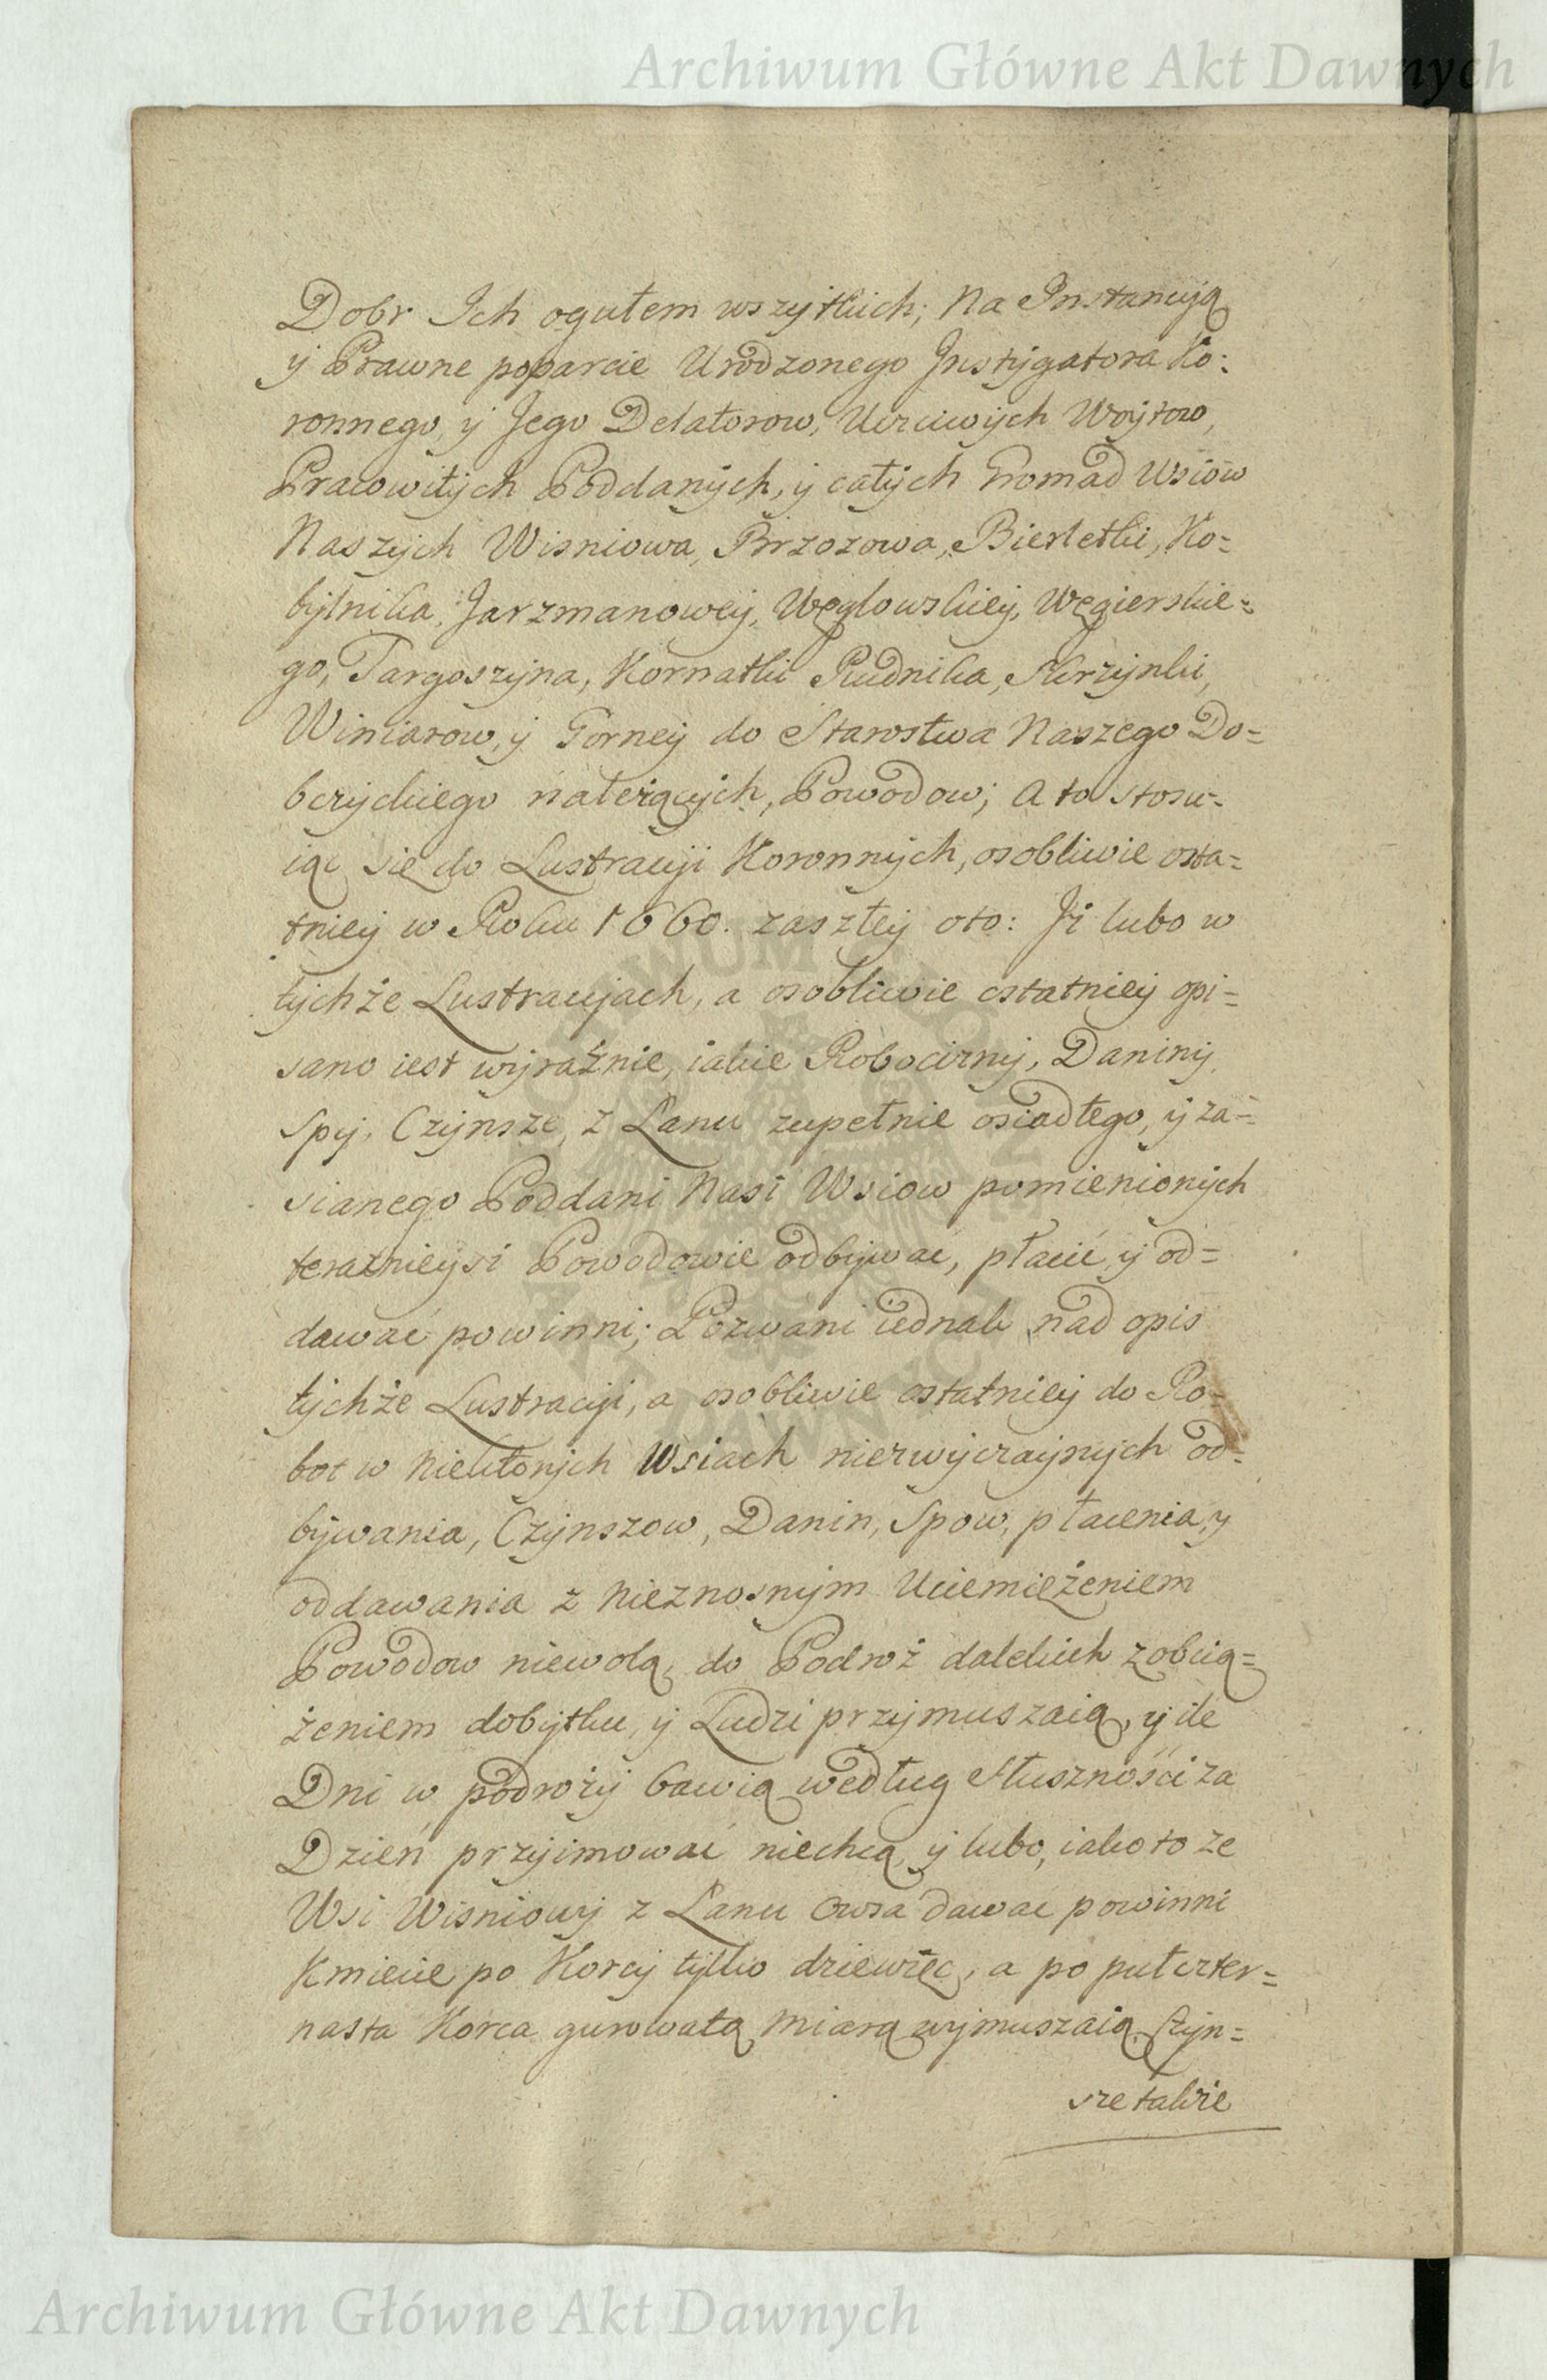 Archiwum Główne Akt Dawnych
Dobr Ich ogułem wszytkich; Na Instancyją
y Prawne poparcie Urodzonego Instygatora Ko:
ronnego, y Jego Delatorow, Uczciwych Woytow,
Pracowitych Poddanych, y całych Gromad Wsiow
Naszych Wisniowa, Brzozowa, Bierletki, Ko=
bylnika, Jarzmanowey, Węglowskiey, Węgierskie=
go, Targoszyna, Kornatki Rudnika, Skrzynki,
Winiarow, y Gorney do Starostwa Naszego Do=
bczyckiego należących, Powodow; A to stosu=
iąc się do Lustracyi Koronnych, osobliwie osta=
tniey w Roku 1660. zaszłey oto: Iż lubo w
tychże Lustracyjach, a osobliwie ostatniey opi=
sano iest wyraźnie, iakie Robocizny, Daniny,
Spy, Czynsze, z Łanu zupełnie osiadłego, y za=
sianego Poddani Nasi Wsiow pomienionych
teraznieysi Powodowie odbywać, płacić y od=
dawać powinni; Pozwani iednak nad opis
tychże Lustracyi, a osobliwie ostatniey do Ro=
bot w Niektorych Wsiach niezwyczaynych od=
bywania, Czynszow, Danin, Spow, płacenia, y
oddawania z Nieznosnym Uciemiężeniem
Powodow niewolą, do Podroż dalekich z obcią=
żeniem dobytku, y Ludzi przymuszaią, y ile
Dni w podroży bawią według Słuszności za
Dzień przyimować niechcą, y lubo, iako to ze
Wsi Wisniowy z Łanu Owsa dawać powinni
Kmiecie po Korcy tylko dziewięć, a po puł czter=
nasta Korca gurowatą Miarą wymuszaią, Czyn=
sze takie
Archiwum Główne Akt Dawnych